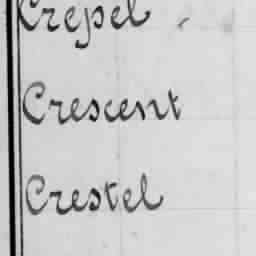 Crepel
Crescent
Crestel